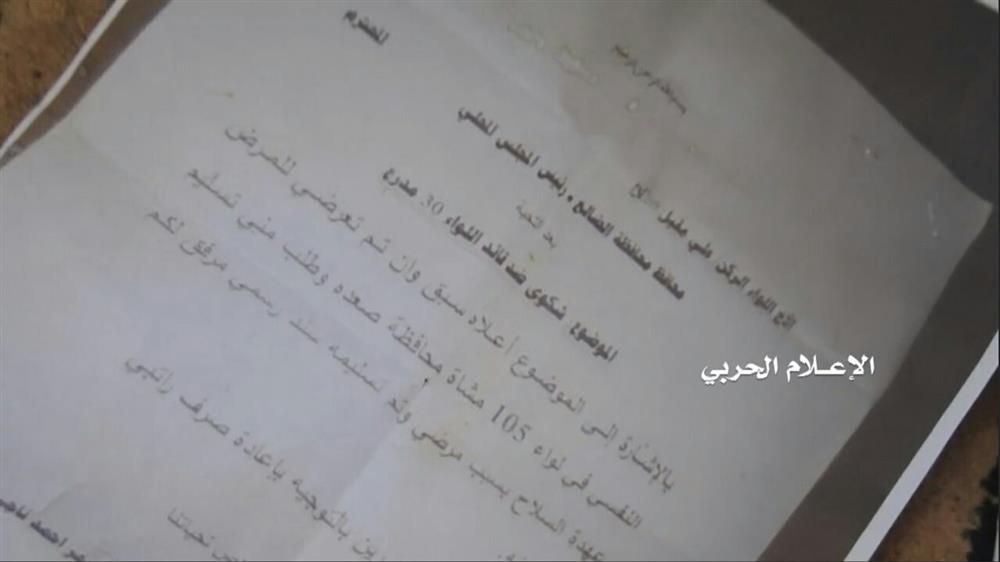 بسم الله الرحمن الرحيم
الأخ اللواء الركن علي مقبل صالح
محافظ محافظة الضالع رئيس المجلس المحلي
المحترم
بعد التحية
الموضوع شكوى ضد قائد اللواء 30 مدرع
بالإشارة إلى الموضوع أعلاه سبق وان تم تعرضي للمرض
النفسي في لواء 105 مشاة محافظة صعده وطلب مني تسليم
عهدة السلاح بسبب مرضي وتم تسليمه سند رسمي مرفق لكم
بالتوجيه بإعادة صرف راتبي
تحياتنا
احمد
الإعلام الحربي